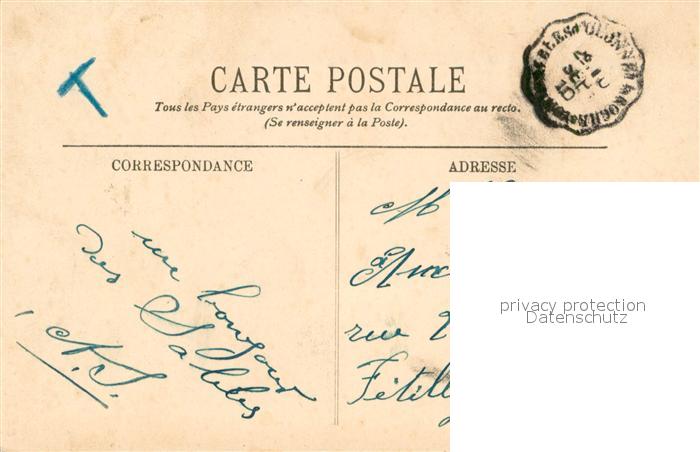 T
CARTE POSTALE
Tous les Pays étrangers n'acceptent pas la Correspondance au recto.
(Se renseigner à la Poste).
CORRESPONDANCE
ADRESSE
un bonjour
des Sables
N.S.
M
rue
privacy protection
Datenschutz